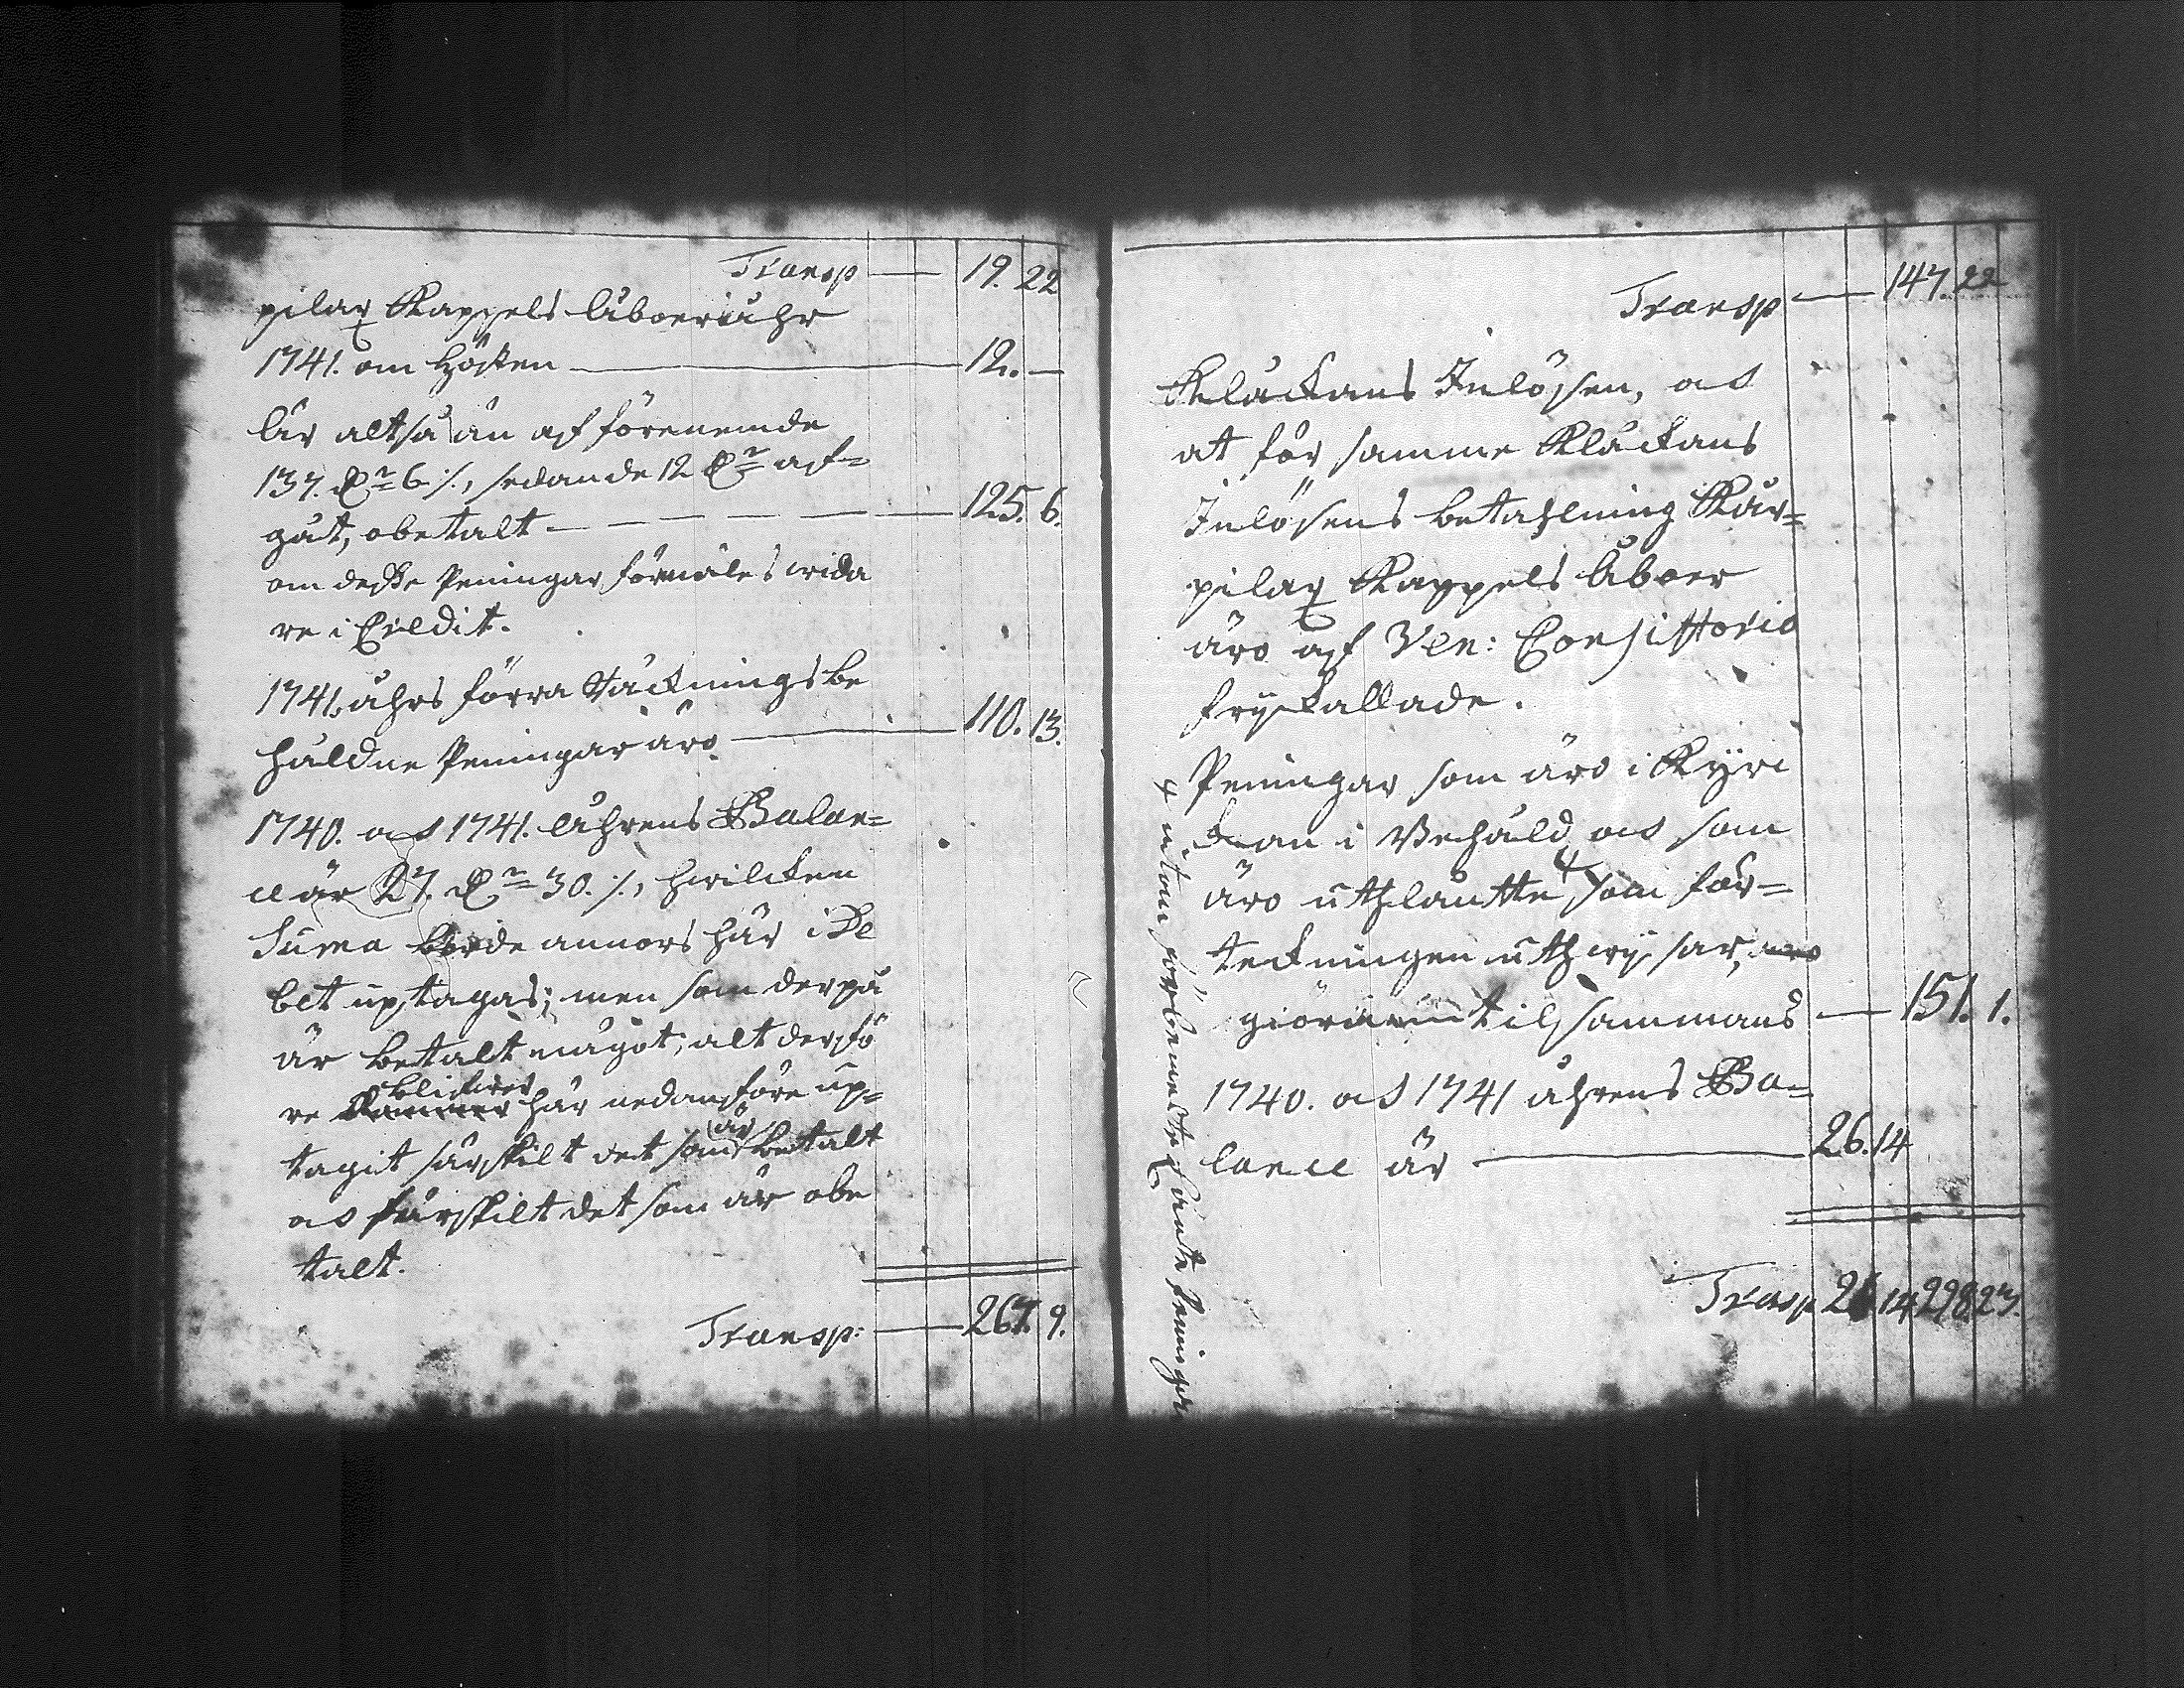 Transp — 19. 22
pilax Kappels Åboer åhr
1741. om Hösten — 12. —
Är altså än af förenemde
137. Dr 6 ./., sedan de 12 Dr af=
gåt, obetalt — 125. 6.
om desse Peningar förmäles wida
re i Credit.
1741. åhrs förra Täcknings be
håldne Peningar äro — 110. 13.
1740. och 1741. Åhrens Balan=
ce är 27. Dr 30. ./., hwilcken
Suma borde annors här i De
bet uptagas; men som derpå
är betalt något; alt derfö
re blifwer här nedanföre up=
tagit särskilt det som är betalt
och särskilt det som är obe
talt.
Transp: — 267. 9.
Transp — 147. 22
Klåckans Inlösen, och
at för samme Klåckans
Inlösens betahlning Kår=
pilax Kappels Åboer
äro af Ven: Consistorio
frijkallade.
Peningar som äro i Kyrc
kan i Behåld och som
äro uthlåntte ⸸ som för=
teckningen uthwijsar,
giöra tilsammans — 151. 1.
1740. och 1741 åhrens Ba=
lance är — 26. 14
Transp 26 14 298. 23.
⸸ utom förbemelte Peningar